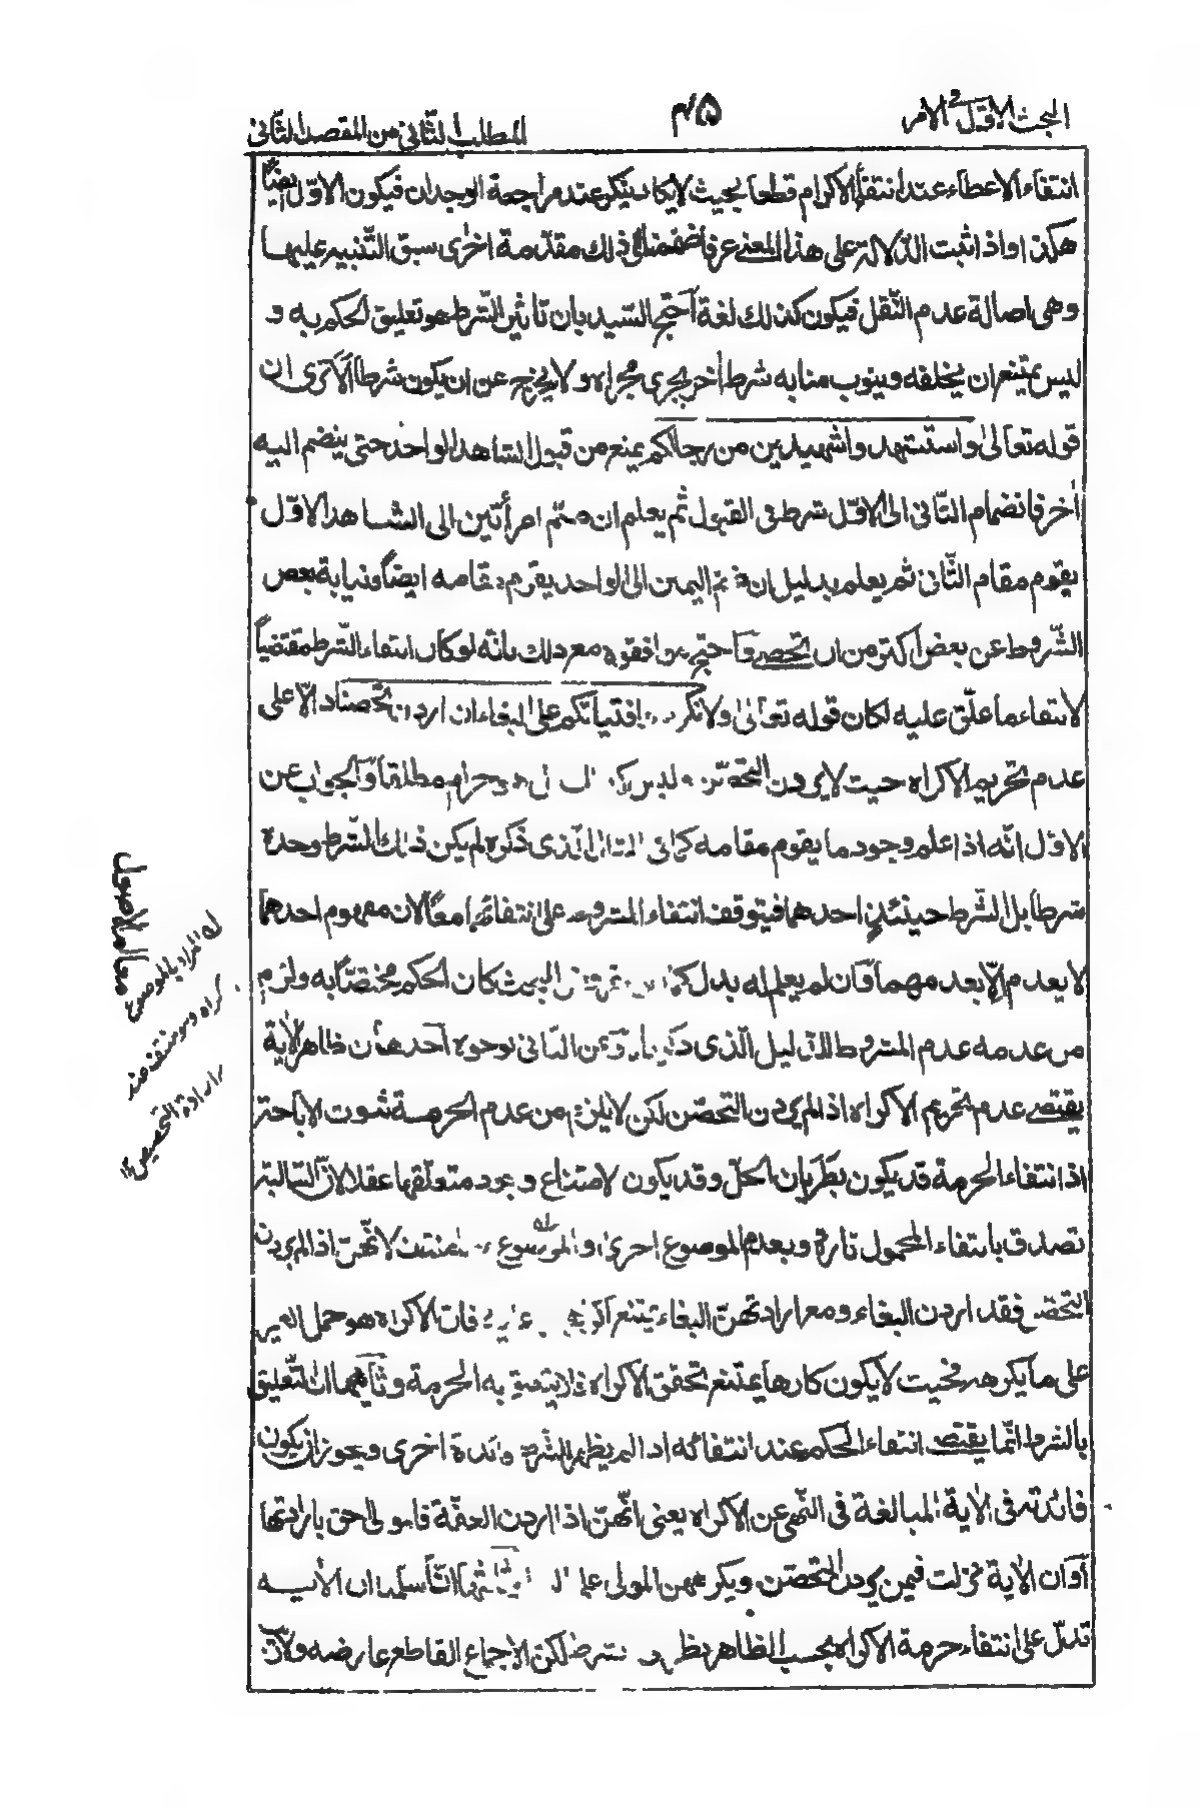 البحث الاول في الامر
۴۵
المطلب الثاني من المقصد الثاني
انتفاء الاعطاء عند انتفاء الاكرام قطعا بحيث لا يكاد ينكر عند مراجعة الوجدان فيكون الاوّل ايضاً
هكذا واذا ثبت الدّلالة على هذا المعنى عرفا ضممنا الى ذلك مقدّمة اخرى سبق التّنبيه عليها
وهي اصالة عدم النّقل فيكون كذلك لغة احتج السّيد بان تأثير الشّرط هو تعليق الحكم به و
ليس يمتنع ان يخلفه وينوب منابه شرط اخر يجرى مجراه ولا يخرج عن ان يكون شرطا ألا ترى ان
قوله تعالى واستشهدوا شهيدين من رجالكم يمنع من قبول الشاهد الواحد حتى ينضم اليه
أخر فانضمام الثّاني الى الاوّل شرط في القبول ثم يعلم ان ضمّ امرأتين الى الشاهد الاوّل
يقوم مقام الثّاني ثم يعلم بدليل ان ضمّ اليمين الى الواحد يقوم مقامه ايضاً ونيابة بعض
الشّروط عن بعض اكثر من ان تحصى واحتج موافقوه مع ذلك بانّه لو كان انتفاء الشّرط مقتضياً
لانتفاء ما علّق عليه لكان قوله تعالى ولا تكرهوا فتياتكم على البغاء ان اردن تحصّنا دالّا على
عدم تحريم الاكراه حيث لا يردن التحصّن وليس كذلك بل هو حرام مطلقاً والجواب عن
الاوّل انّه اذا علم وجود ما يقوم مقامه كما في المثال الّذى ذكره لم يكن ذلك الشّرط وحده
شرطا بل الشّرط حينئذ احدهما فيتوقف انتفاء المشروط على انتفائهما معاً لان مفهوم احدهما
لا يعدم الّا بعدمهما وان لم يعلم له بدل كما هو مفروض البحث كان الحكم مختصّا به ولزم
من عدمه عدم المشروط للدّليل الّذى ذكرناه وعن الثّاني بوجوه احدها ان ظاهر الآية
يقتضى عدم تحريم الاكراه اذا لم يردن التحصّن لكن لا يلزم من عدم الحرمة ثبوت الاباحة
اذ انتفاء الحرمة قد يكون بطريان الحلّ وقد يكون لامتناع وجود متعلّقها عقلا لانّ السّالبة
تصدق بانتفاء المحمول تارة وبعدم الموضوع اخرى والموضوع هنا منتف لانّهنّ اذا لم يردن
التحصّن فقد اردن البغاء ومع ارادتهنّ البغاء يمتنع اكراههنّ عليه فان الاكراه هو حمل الغير
على ما يكرهه فحيث لا يكون كارها يمتنع تحقق الاكراه فلا يتعلق به الحرمة وثانيهما ان التّعليق
بالشرط انّما يقتضى انتفاء الحكم عند انتفائه اذا لم يظهر للشّرط فائدة اخرى ويجوز ان يكون
فائدته في الآية المبالغة في النّهى عن الاكراه يعنى انّهنّ اذا اردن العفّة فالمولى احق بارادتها
أو ان الآية نزلت فيمن يردن التّحصّن ويكرههن المولى على الزنا وثالثها انّا سلّمنا ان الآية
تدلّ على انتفاء حرمة الاكراه بحسب الظاهر نظرا الى الشرط لكن الاجماع القاطع عارضه ولا ريب انّ
معالم الاصول
له المراد بالموضوع
اكراه وهو منتف عند
ارادة التحصين